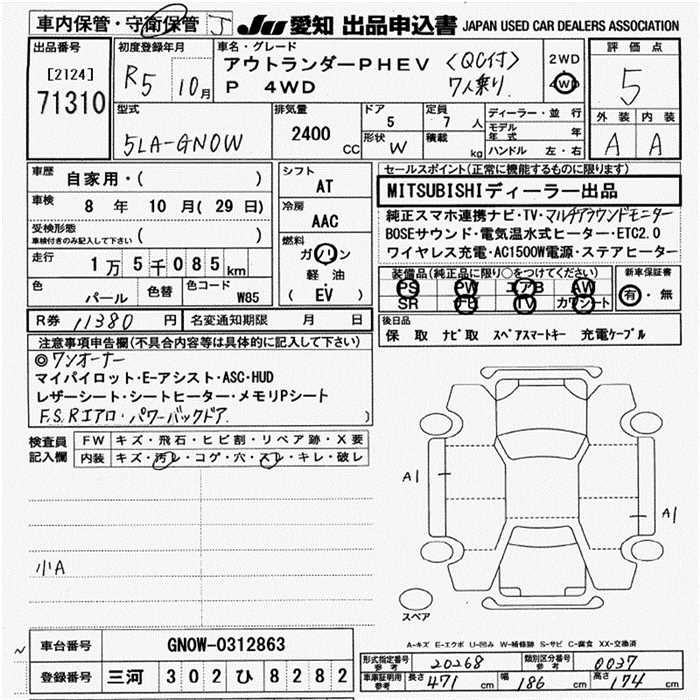 車内保管・守衛保管 J
JU 愛知 出品申込書 JAPAN USED CAR DEALERS ASSOCIATION
出品番号
[2124]
71310
初度登録年月
R5 10月
車名・グレード
アウトランダーPHEV 〈QC付〉
P 4WD 7人乗り.
2WD
4WD
評価点
5
外装 内装
A A
型式
5LA-GN0W
排気量
2400 CC
ドア
5
形状 W
定員
7 人
積載 kg
ディーラー・並行
モデル年式 年
ハンドル 左・右
車歴 自家用・( )
車検 8 年 10 月 ( 29 日)
受検形態
車検付きのみ記入して下さい ( )
走行 1万5千085km
色 パール
色替
色コード W85
シフト
AT
冷房
AAC
燃料
ガソリン
軽油
( EV )
R券 11380 円
名変通知期限 月 日
セールスポイント(正常に機能するものに限ります)
MITSUBISHIディーラー出品
純正スマホ連携ナビ・TV・マルチアラウンドモニター
BOSEサウンド・電気温水式ヒーター・ETC2.0
ワイヤレス充電・AC1500W電源・ステアヒーター
装備品(純正品に限り○をつけてください)
PS PW エアB AW
SR ナビ TV カワシート
新車保証書
有・無
後日品
保 取 ナビ取 スペアスマートキー 充電ケーブル
注意事項申告欄(不具合内容等は具体的に記入して下さい)
◎ワンオーナー
マイパイロット・E-アシスト・ASC・HUD
レザーシート・シートヒーター・メモリPシート
F.S.Rエアロ・パワーバックドア.
検査員記入欄
FW キズ・飛石・ヒビ割・リペア跡・X要
内装 キズ・汚レ・コゲ・穴・スレ・キレ・破レ
小A
A1
A1
スペア
A-キズ E-エクボ U-凹み W-補修跡 S-サビ C-腐食 XX-交換済
車台番号 GN0W-0312863
登録番号 三河 302 ひ 8282
形式指定番号 参考 20268
類別区分番号 参考 0037
車庫証明用 参考 長さ 471 cm 幅 186 cm 高さ 174 cm